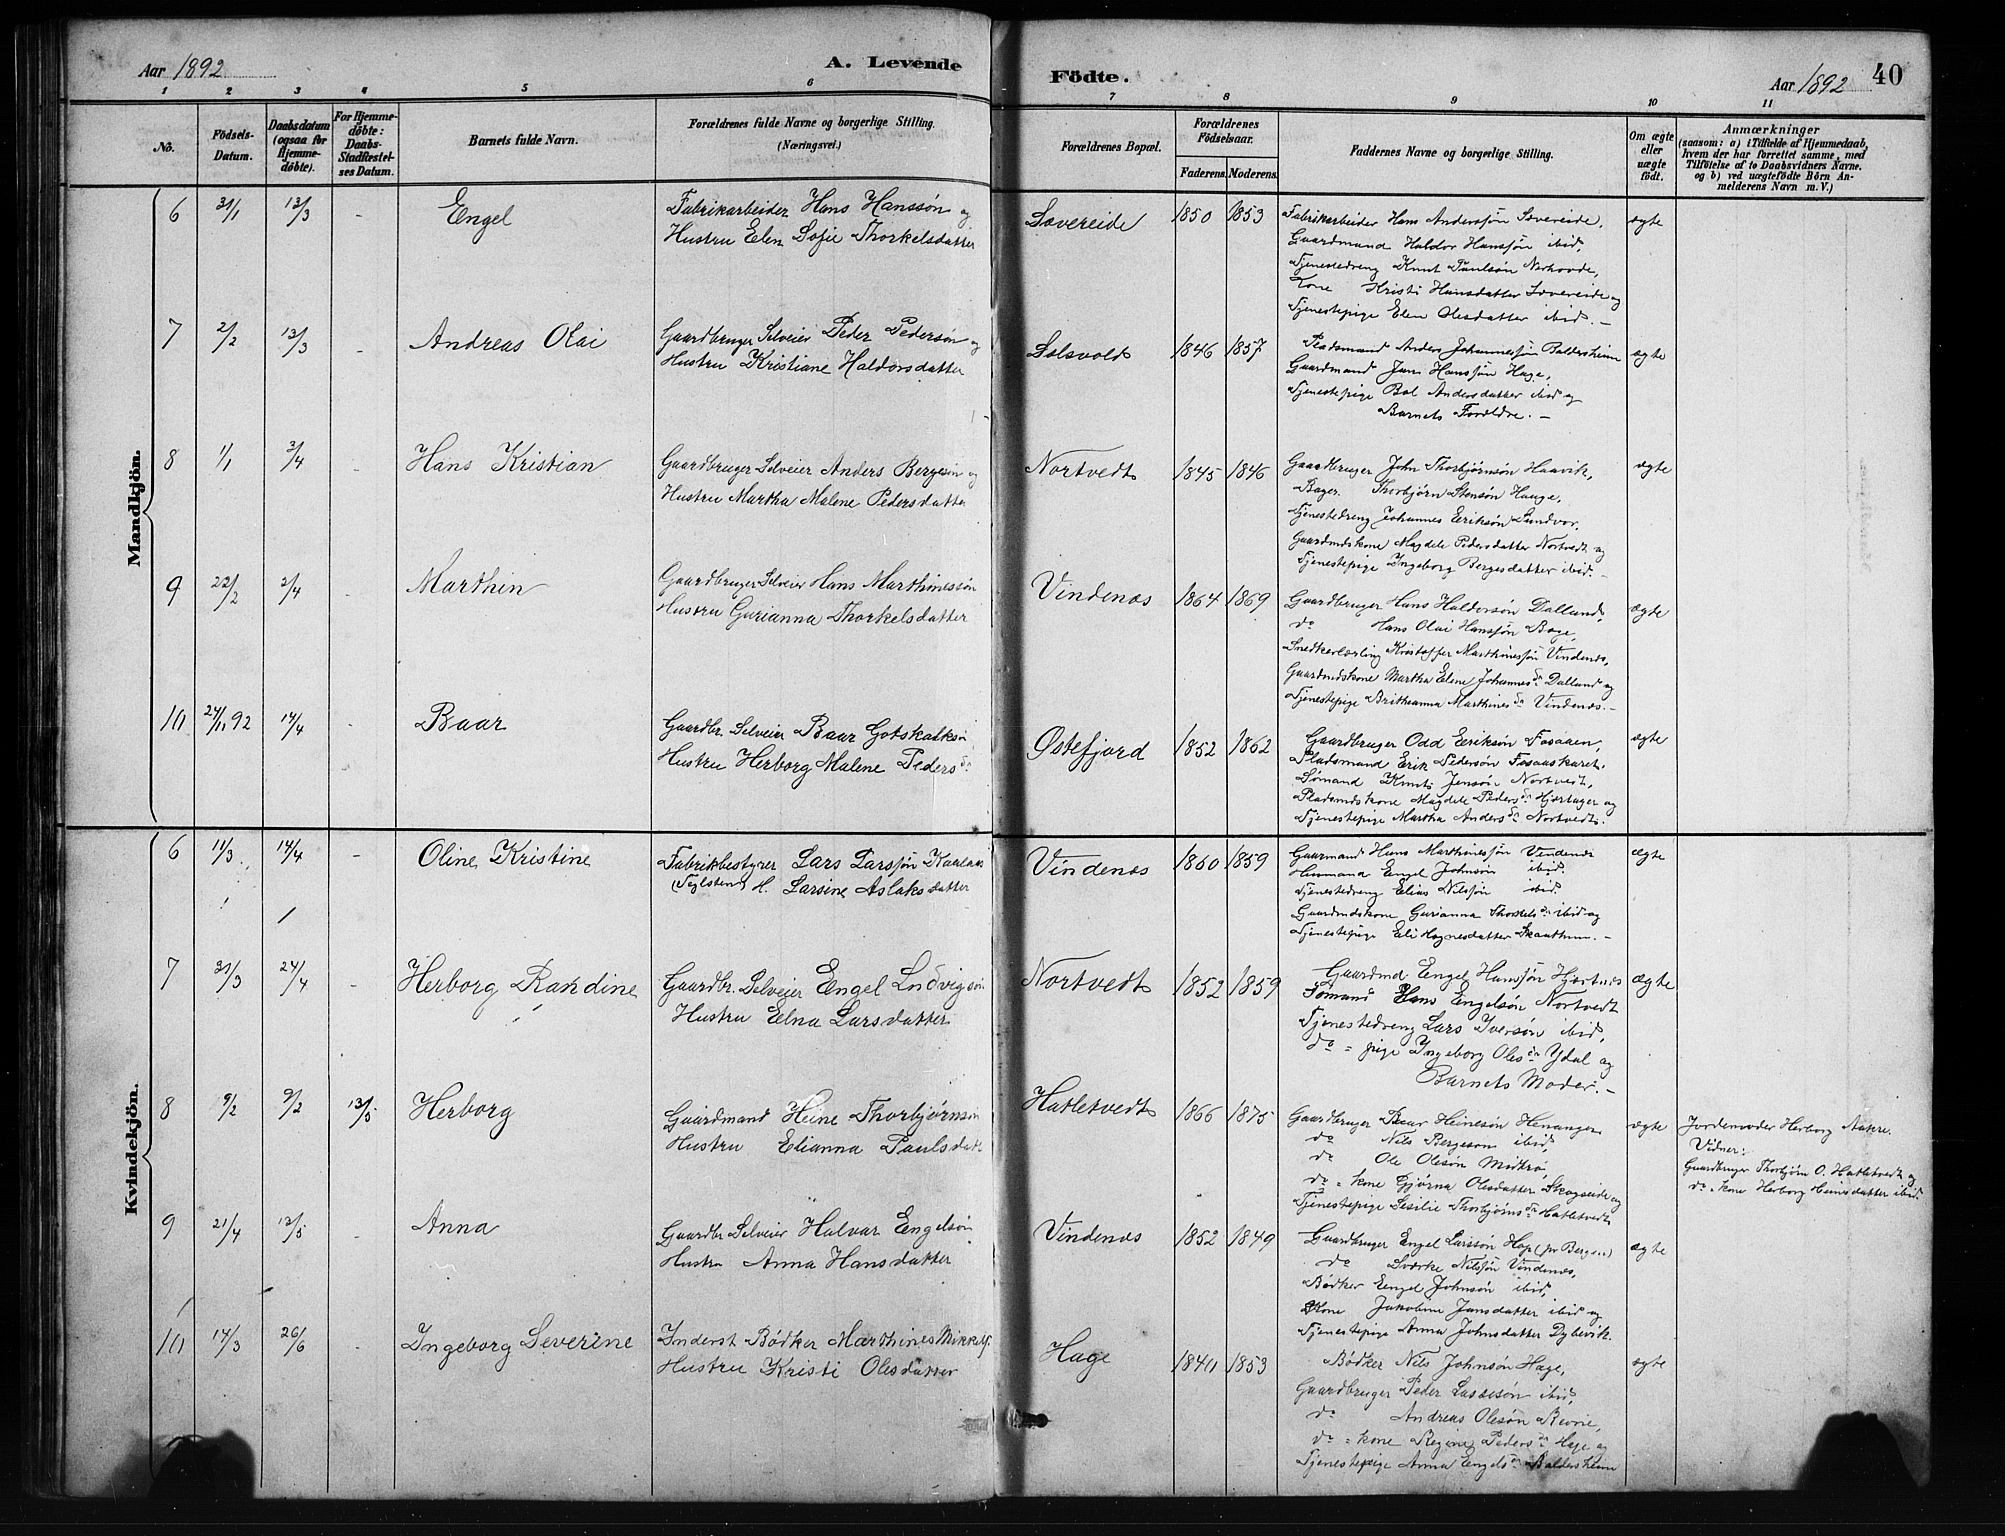 Aar 1892
A. Levende
Födte.
Aar 1892
40
1 2 3 4 5 6 7 8 9 10 11
Nö.
Födsels-Datum.
Daabsdatum (ogsaa for Hjemme-döbte).
For Hjemme-döbte: Daabs-Stadfæstel-ses Datum.
Barnets fulde Navn.
Forældrenes fulde Navne og borgerlige Stilling.
(Næringsvei.)
Forældrenes Bopæl.
Forældrenes Födselsaar.
Faderens. Moderens.
Faddernes Navne og borgerlige Stilling.
Om ægte eller uægte födt.
Anmærkninger
(saasom: a) i Tilfælde af Hjemmedaab,
hvem der har forrettet samme, med
Tilföielse af to Daabsvidners Navne.
og b) ved uægtefödte Börn An-
melderens Navn m. V.)
Mandkjön.
6 31/1 13/3 - Engel
Fabrikarbeider Hans Hanssøn og
Hustru Elen Sofie Thorkelsdatter
Sævereide 1850 1853
Fabrikarbeider Hans Anderssøn Sævereide,
Gaardmand Haldor Hanssøn ibid,
Tjenestedreng Knut Paulsøn Nerhovde,
Kone Kristi Hansdatter Sævereide og
Tjenestepige Elen Olesdatter ibid. -
ægte
7 2/2 13/3 - Andreas Olai
Gaardbruger Selveier Peder Pedersøn og
Hustru Kristiane Haldorsdatter
Solsvold 1846 1857
Pladsmand Anders Johannessøn Baldersheim
Gaardmand Jans Hanssøn Hage,
Tjenestepige Bol Andersdatter ibid og
Barnets Forældre. -
ægte
8 1/1 3/4 - Hans Kristian
Gaardbruger Selveier Anders Bergesøn og
Hustru Martha Malene Pedersdatter
Nortvedt 1845 1846
Gaardbruger John Thorbjørnsøn Haavik,
Bager Thorbjørn Stensøn Hauge,
Tjenestedreng Johannes Eriksøn Sundvor,
Gaardmdskone Magdele Pedersdatter Nortvedt og
Tjenestepige Ingeborg Bergesdatter ibid. -
ægte
9 22/2 3/4 - Marthin
Gaardbruger Selveier Hans Marthinessøn
Hustru Gurianna Thorkelsdatter
Vindenæs 1864 1869
Gaardbruger Hans Haldorsøn Dalland,
do Hans Olai Hanssøn Bage,
Snedkerlærling Kristoffer Marthinessøn Vindenæs,
Gaardmdskone Martha Elene Johannesdr Dalland og
Tjenestepige Britheanna Marthinesdr Vindenæs. -
ægte
10 24/11 92 14/4 - Baar
Gaardbr. Selveier Baar Gotskalksø
Hustru Herborg Malene Pedersdr
Østefjord 1852 1862
Gaardbruger Odd Eriksøn Fosaaen,
Pladsmand Erik Pedersøn Fosaaskaret.
Sømand Knut Jensøn Nortvedt,
Pladsmdskone Magdele Pedersdr Hjertager og
Tjenestepige Martha Andersdr Nortvedt.
ægte
Kvindekjön.
6 11/3 14/4 - Oline Kristine
Fabrikbestyrer Lars Larssøn
(Teglsten) H. Larsine Aslaksdatter
Vindenæs 1860 1859
Gaarmand Hans Marthinessøn Vindenæs
Husmand Engel Johnsøn ibid.
Tjenestedreng Elias Nilssøn ibid.
Gaardmdskone Gurianna Thorkelsdr ibid og
Tjenestepige Eli Hognesdatter
ægte
7 31/3 24/4 - Herborg Randine
Gaardbr. Selveier Engel Ludvigsøn
Hustru Elna Larsdatter
Nortvedt 1852 1859
Gaardmd Engel Hanssøn Hjertnes
Sømand Hans Engelsøn Nortvedt
Tjenestedreng Lars Iversøn ibid,
do = pige Ingeborg Olesdr Ydal og
Barnets Moder. -
ægte
8 9/2 9/2 13/5 Herborg
Gaardmand Heine Thorbjørnsøn
Hustru Elianna Paulsdatt
Hatletvedt 1866 1875
Gaardbruger Baar Heinesøn Henanger
do Nils Bergeson ibid,
do Ole Olesøn Midtbø,
do = kone Gjørna Olesdatter Skogseide og
Tjenestepige Sesilie Thorbjørnsdr Hatletvedt
ægte
Jordemoder Herborg Aakre.
Vidner:
Gaardbruger Thorbjørn O. Hatletvedt og
do = kone Herborg Heinesdatter ibid.
9 21/4 13/5 - Anna
Gaardbr Selveier Halvar Engelsøn
Hustru Anna Hansdatter
Vindenæs 1852 1849
Gaardbruger Engel Larssøn Hop (pr Bergen)
do Sværke Nilssøn Vindenæs,
Bødker Engel Johnsøn ibid,
Kone Jakobine Jansdatter ibid og
Tjenestepige Anna Johnsdatter Dybevik.
ægte
10 14/3 26/6 Ingeborg Severine
Inderst Bødker Marthines Mikkels.
Hustru Kristi Olesdatter
Hage 1840 1853
Bødker Nils Johnsøn Hage,
Gaardbruger Peder Lassesøn ibid,
do Andreas Olesøn Revne,
do = kone Regine Pedersdr Hage og
Tjenestepige Anna Engelsdr Baldersheim
ægte